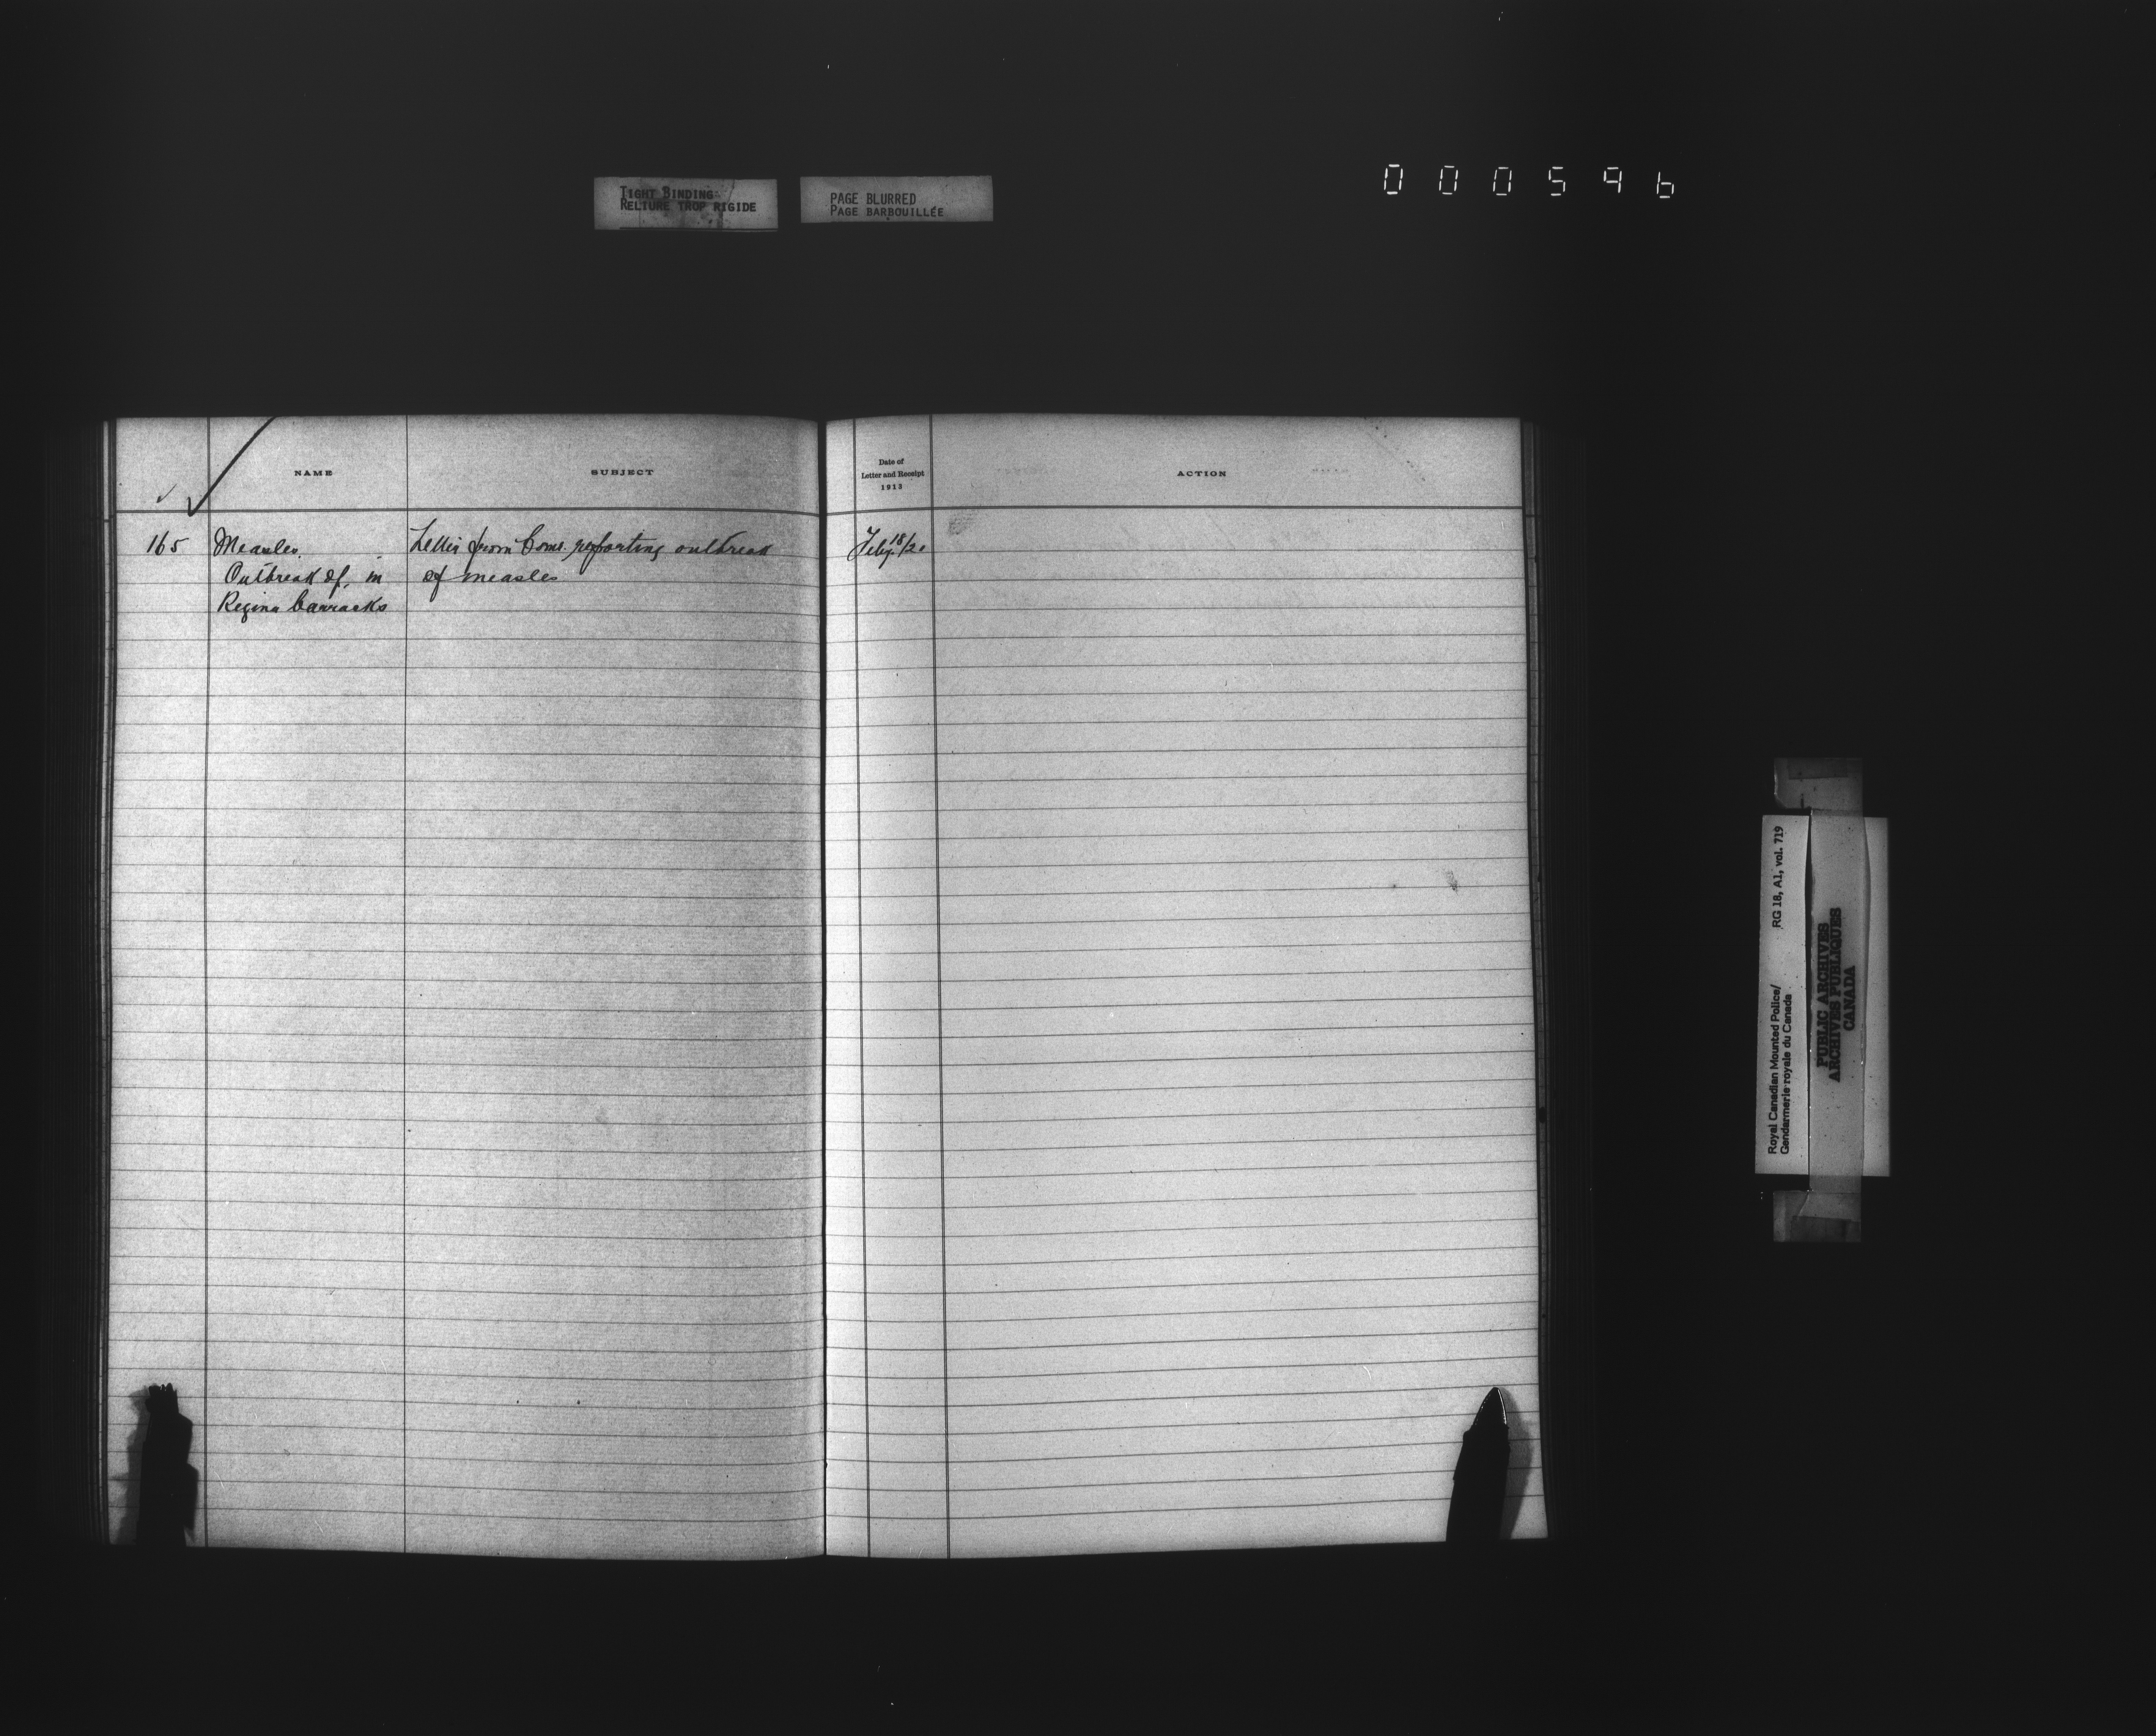 TIGHT BINDING
RELIURE TROP RIGIDE
PAGE BLURRED
PAGE BARBOUILLÉE
000596
NAME
SUBJECT
Date of
Letter and Receipt
1913
ACTION
165 Measles. Letter from Comr. reporting outbreak Feby. 18/20
Outbreak of, in of measles
Regina barracks
Royal Canadian Mounted Police/ RG 18, A1, vol. 719
Gendarmerie royale du Canada
PUBLIC ARCHIVES
ARCHIVES PUBLIQUES
CANADA